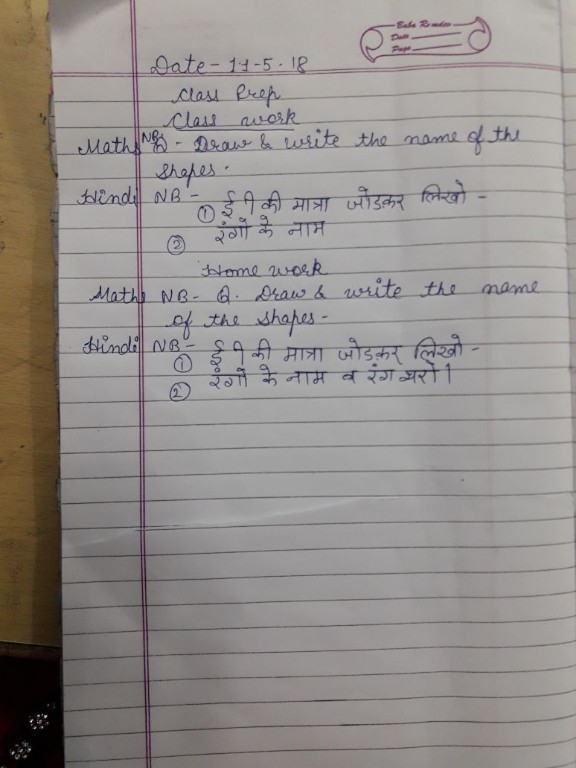 Baba Remdev
Date
Page
Date - 11-5-18
Class Prep
Class work
Maths NB Q - Draw & write the name of the
shapes.
Hindi NB -
① ई ी की मात्रा जोडकर लिखो -
② रंगो के नाम
Home work
Maths NB - Q. Draw & write the name
of the shapes -
Hindi NB -
① ई ी की मात्रा जोडकर लिखो -
② रंगो के नाम व रंग भरो।